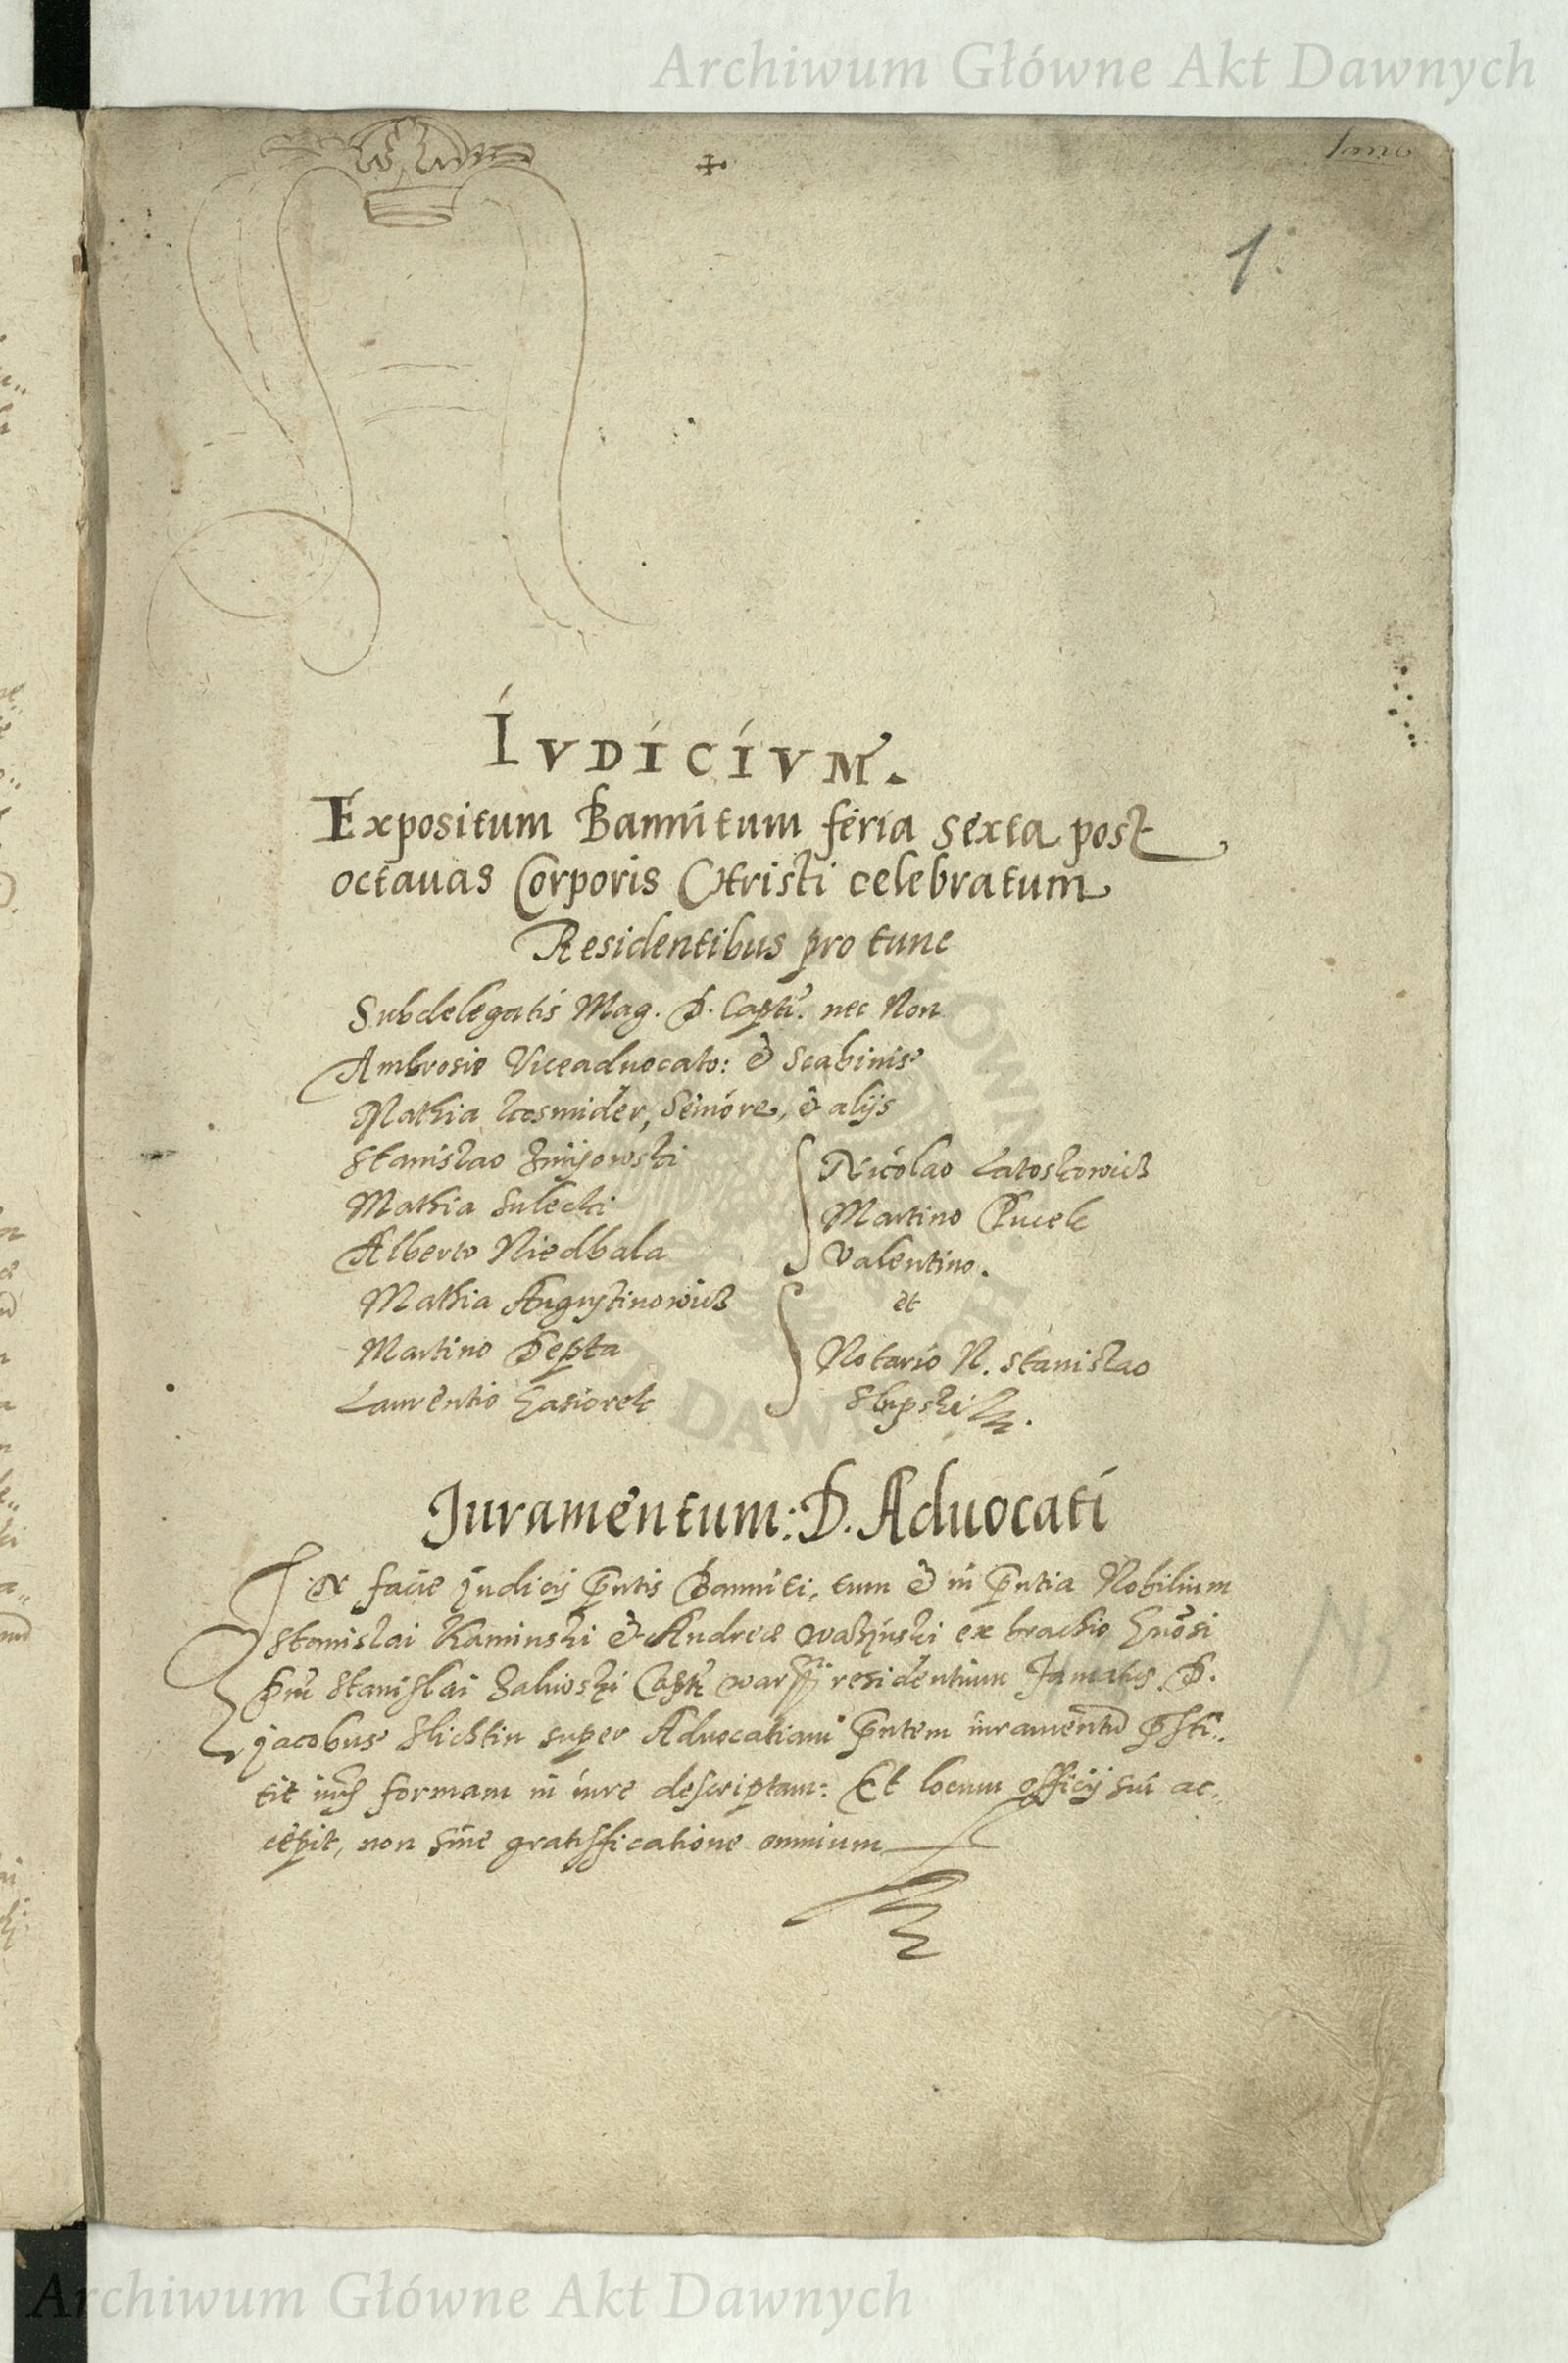 Archiwum Główne Akt Dawnych
1.
IVDICIVM.
Expositum Bannitum feria sexta post
octauas Corporis Christi celebratum
Residentibus pro tunc
Subdelegatis Mag. D. Capti. nec Non
Ambrosio Viceaduocato: & Scabinis
Mathia Kosmider, Seniore, & alijs
Stanislao Zmijowski
Mathia Sulecki
Alberto Niedbala
Mathia Augustinowicz
Martino Depta
Laurentio Gasiorek
Nicolao Latoskowicz
Martino Pucek
Valentino.
et
Notario N. Stanislao
Slupski
Iuramentum: D. Aduocati
facie judicij pntis Banniti, tum & in pntia Nobilium
Stanislai Kaminski & Andreæ ex brachio Gnosi
Dni Stanislai Capti residentium Famatus D.
jacobus Slichtin super Aduocatiam pntem iuramentu psti..
tit formam in iure descriptam: Et locum officij sui ac..
cepit, non sine gratifficatione omnium
Archiwum Główne Akt Dawnych